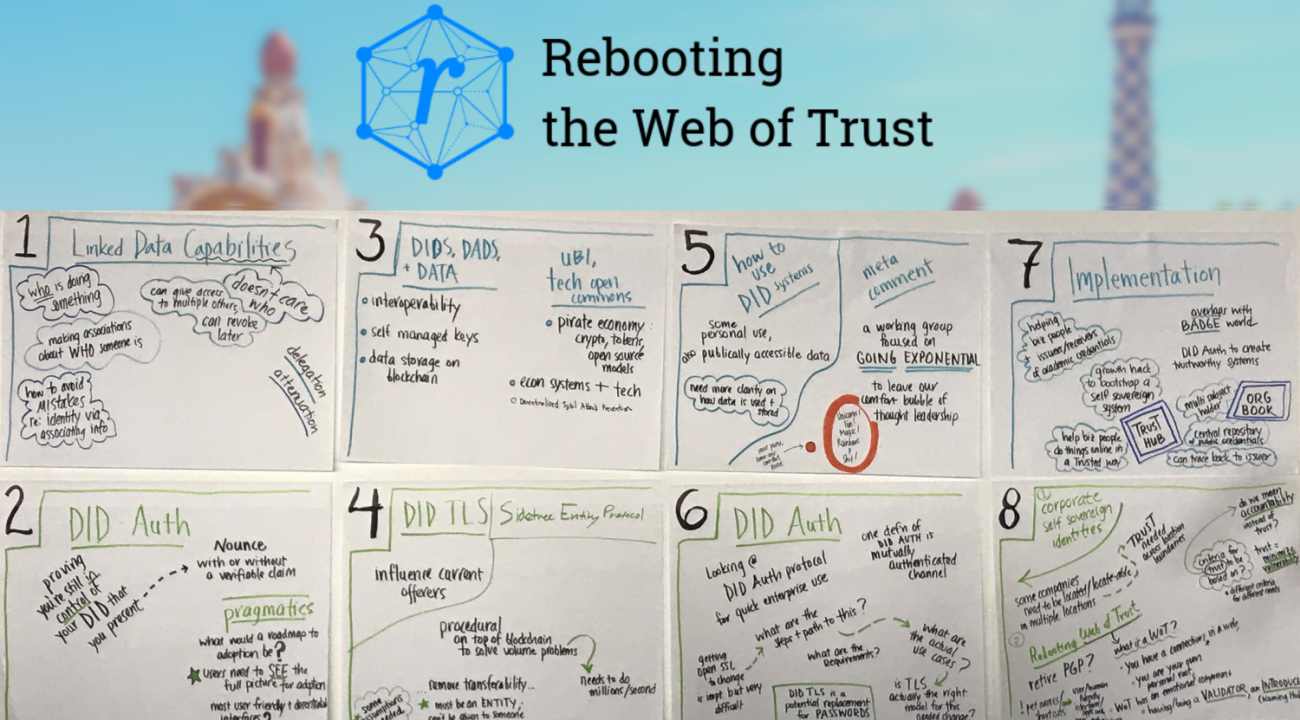 Rebooting
the Web of Trust
1
Linked Data Capabilities
who is doing
something
can give access
to multiple others
can revoke
later
doesn't care
who
making associations
about WHO someone is
how to avoid
MISTAKES
re: identity via
associating info
delegation
attenuation
3
DIDS, DADS,
+ DATA
interoperability
self managed keys
data storage on
blockchain
UBI,
tech open
commons
pirate economy:
crypto, tokens,
open source
models
econ systems + tech
Decentralized Sybil Attack Prevention
5
how to
use
DID systems
some
personal use,
also publically accessible data
need more clarity on
how data is used +
stored
meta
comment
a working group
focused on
GOING EXPONENTIAL
to leave our
comfort bubble of
thought leadership
Unicorns!
Fun!
Magic!
Rainbows
7
Implementation
helping
biz people
+ issuers/receivers
of academic credentials
growth hack
to bootstrap a
self sovereign
system
help biz people
do things online in
a Trusted way
TRUST
HUB
overlaps with
BADGE world
DID Auth to create
trustworthy systems
multi subject
holder
ORG
BOOK
central repository
of public credentials
can trace back to issuer
2
DID Auth
proving
you're still in
control of
your DID that
you present
Nounce
with or without
a verifiable claim
pragmatics
what would a roadmap to
adoption be?
users need to SEE the
full picture for adption
most user friendly +
interfaces?
4
DID TLS
Sidetree Entity Protocol
influence current
offerers
procedural
on top of blockchain
to solve volume problems
needs to do
millions/second
remove transferability...
must be an ENTITY,
can't be given to someone
some
assumptions
6
DID Auth
Looking @
DID Auth protocal
for quick enterprise use
one defn of
DID AUTH is
mutually
authenticated
channel
what are the
steps + path to this?
what are the
Requirements?
what are
the actual
use cases?
getting
open SSL
to change
is impt but very
difficult
is TLS
actually the right
model for this
needed change?
DID TLS is a
potential replacement
for PASSWORDS
8
corporate
self sovereign
identities
some companies
need to be located/locate-able
in multiple locations
TRUST
needed
across
boundaries
do we mean
accountability
instead of
trust?
criteria for
trust to be
based on?
+ different criteria
for different needs
trust =
Rebooting Web of Trust
retire PGP?
what is a WoT?
you have a connection, in a web,
you are your own
personal root
WoT has an emotional component
having/being a VALIDATOR, an